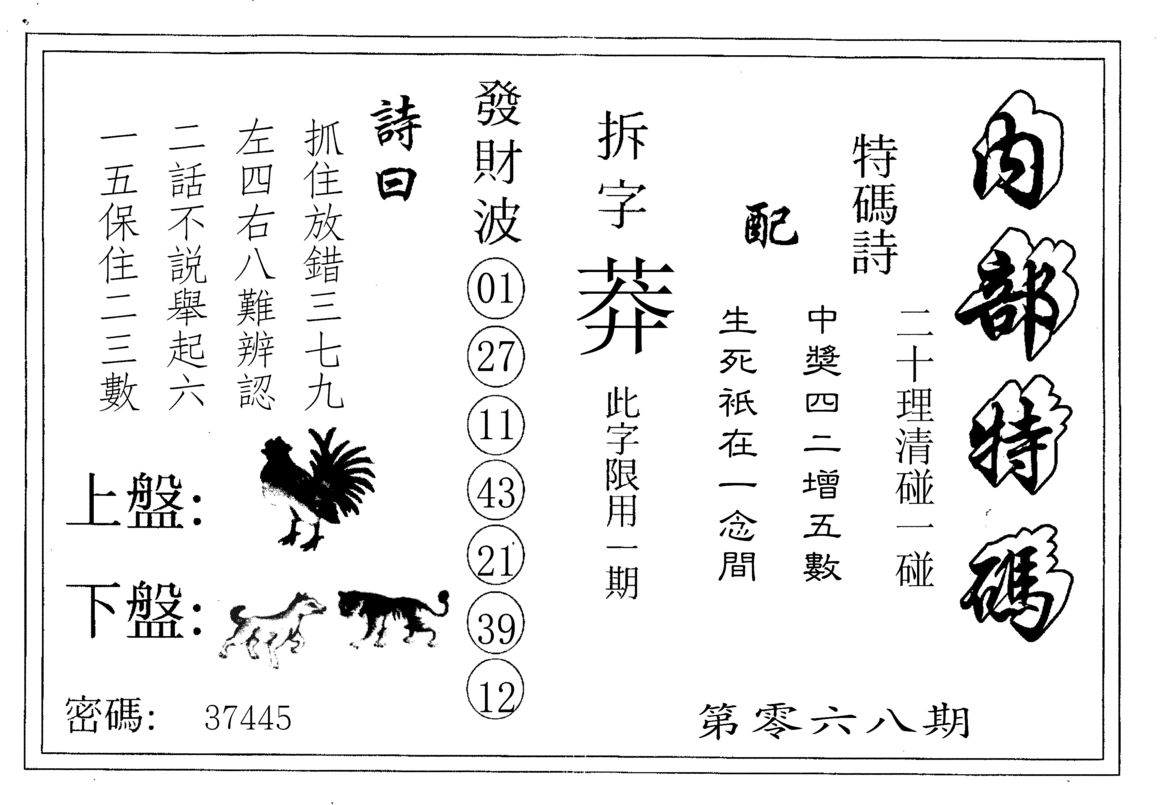 內部特碼
特碼詩
二十理清碰一碰
中獎四二增五數
配
生死衹在一念間
第零六八期
拆字
莽
此字限用一期
發財波
01
27
11
43
21
39
12
詩曰
抓住放錯三七九
左四右八難辨認
二話不説舉起六
一五保住二三數
上盤：
下盤：
密碼： 37445